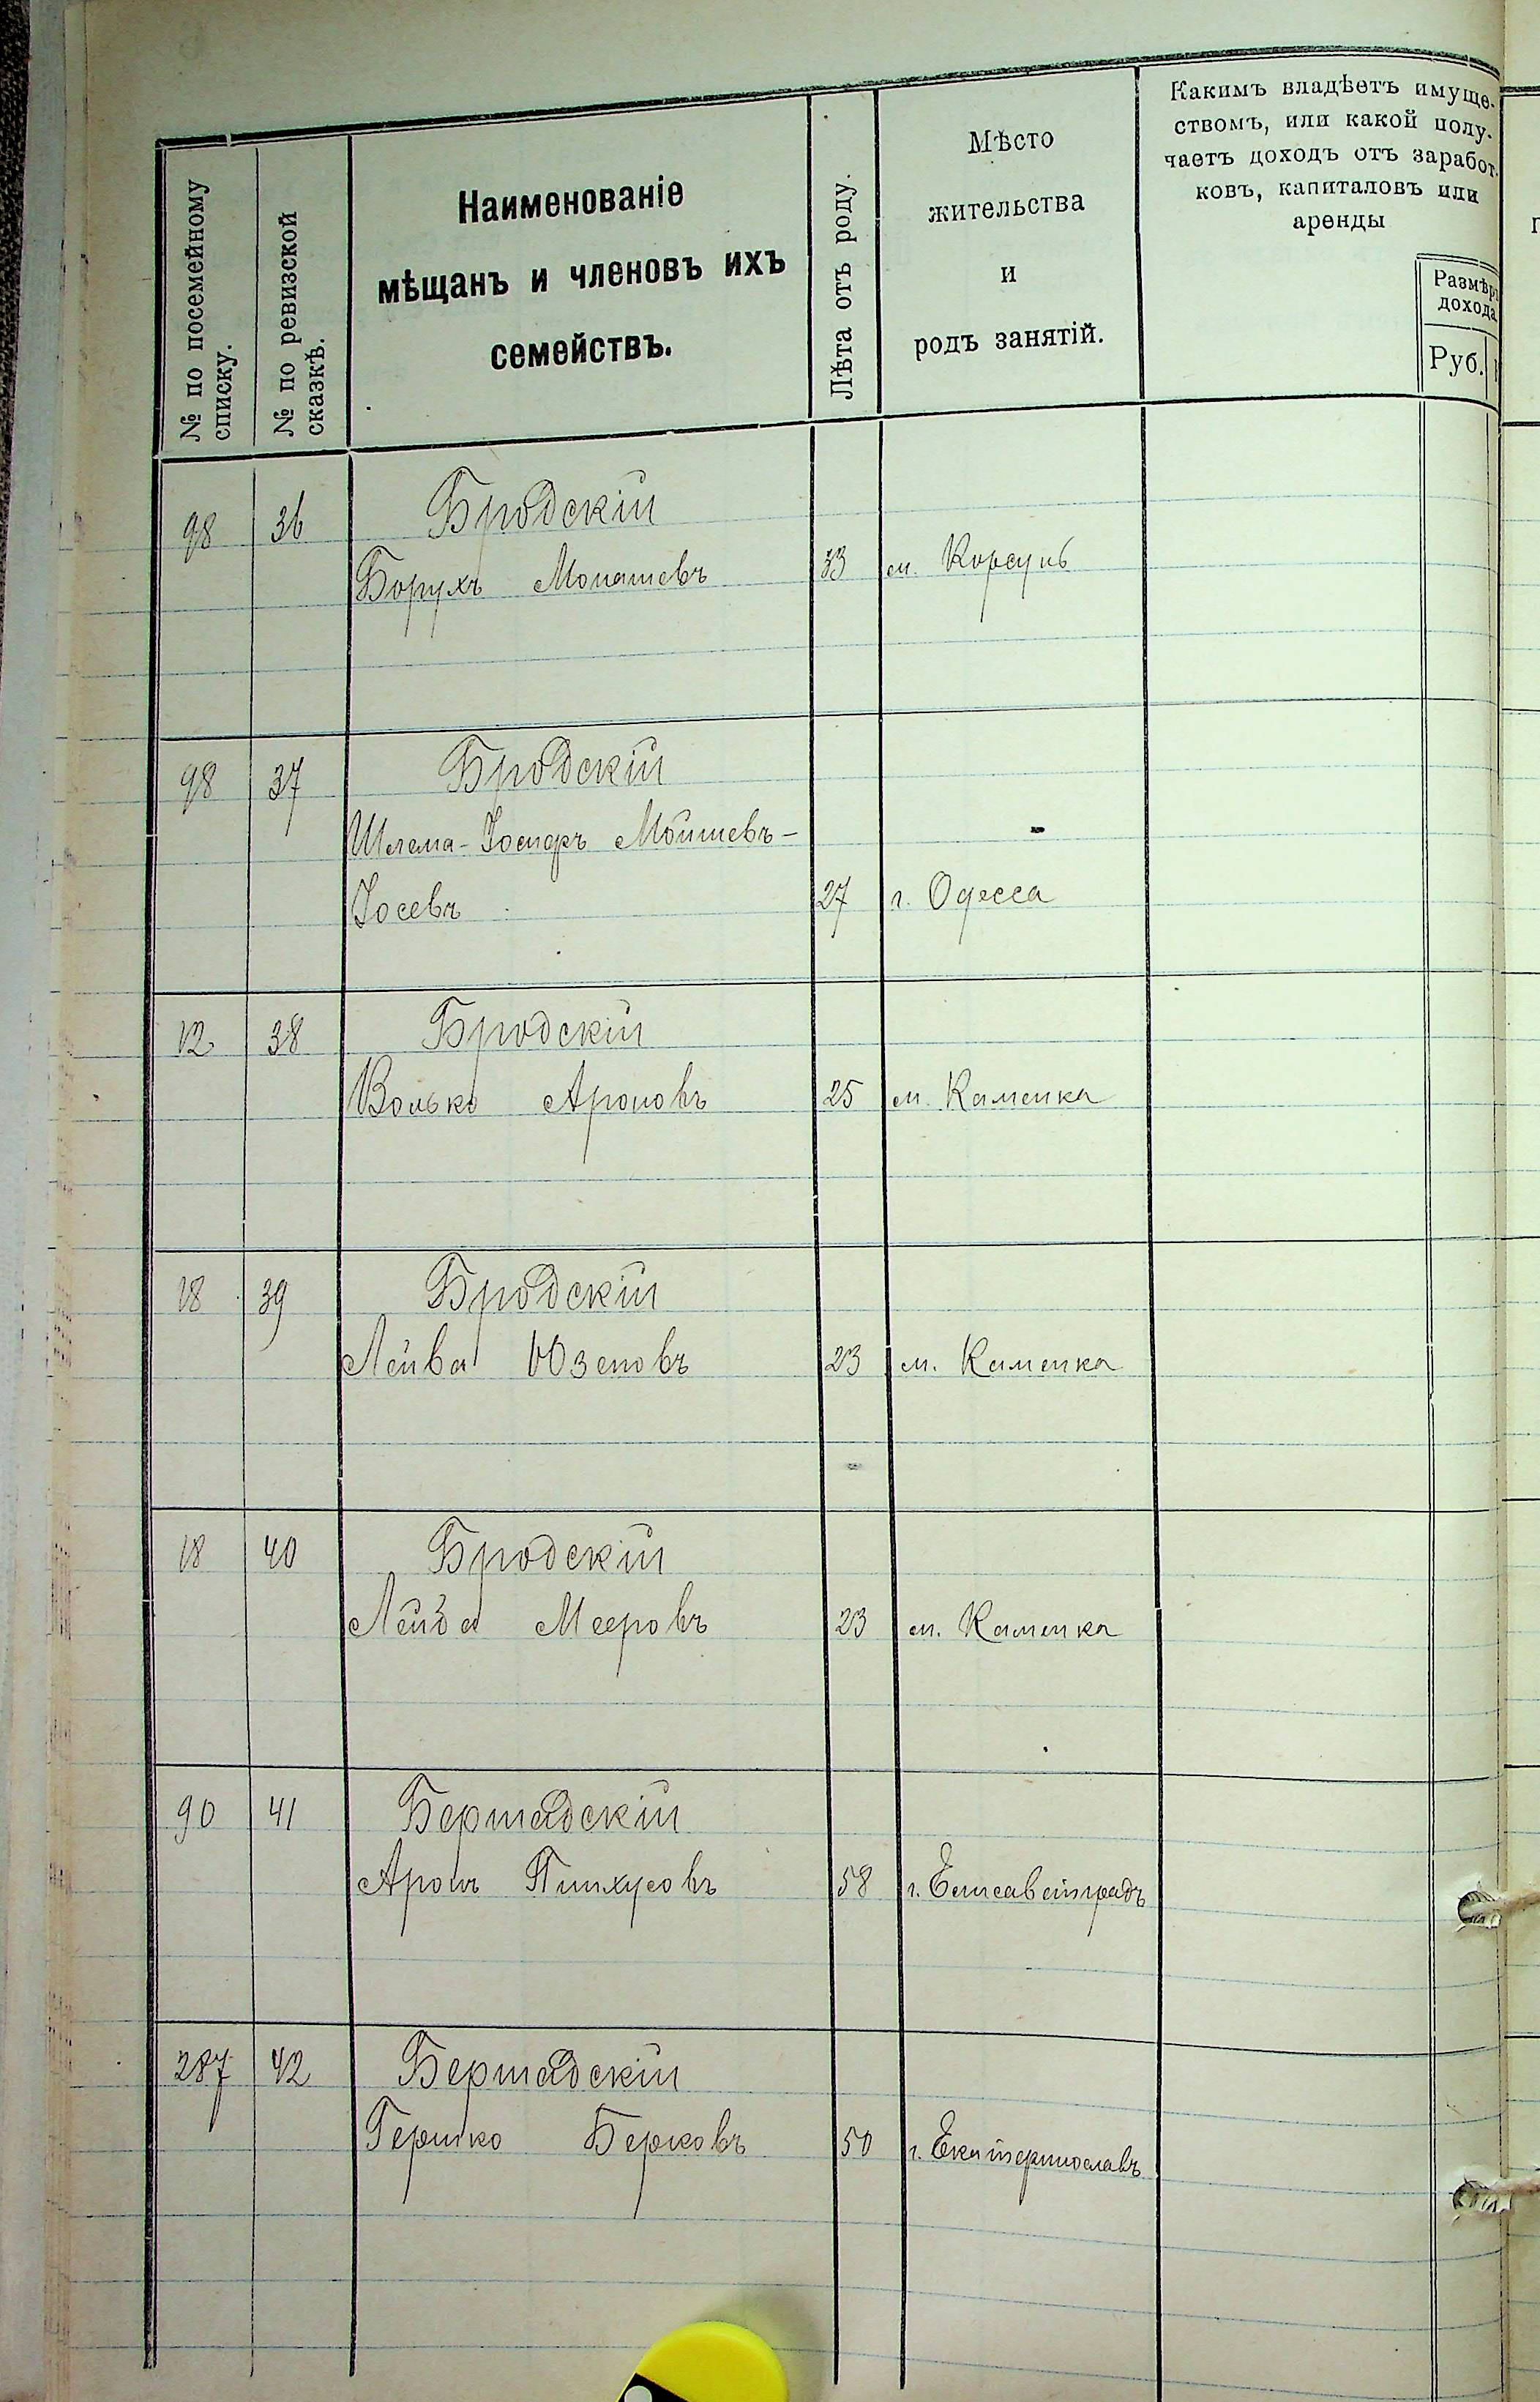 № по посемейному
списку.
№ по ревизской
сказкѣ.
Наименованіе
мѣщанъ и членовъ ихъ
семействъ.
Лѣта отъ роду.
Мѣсто
жительства
и
родъ занятій.
Какимъ владѣетъ имуще-
ствомъ, или какой полу-
чаетъ доходъ отъ заработ-
ковъ, капиталовъ или
аренды
Размѣръ
дохода
Руб.
98 36 Бродскій
Борухъ Монашевъ 33 м. Корсунь
98 37 Бродскій
Шлема-Іосифъ Мойшевъ-
Іосевъ 27 г. Одесса
12 38 Бродскій
Волько Ароновъ 25 м. Каменка
18 39 Бродскій
Лейва Юзеповъ 23 м. Каменка
18 40 Бродскій
Лейба Мееровъ 23 м. Каменка
90 41 Бершадскій
Аронъ Пинхусовъ 58 г. Елисаветградъ
287 42 Бершадскій
Гершко Берковъ 50 г. Екатеринославъ